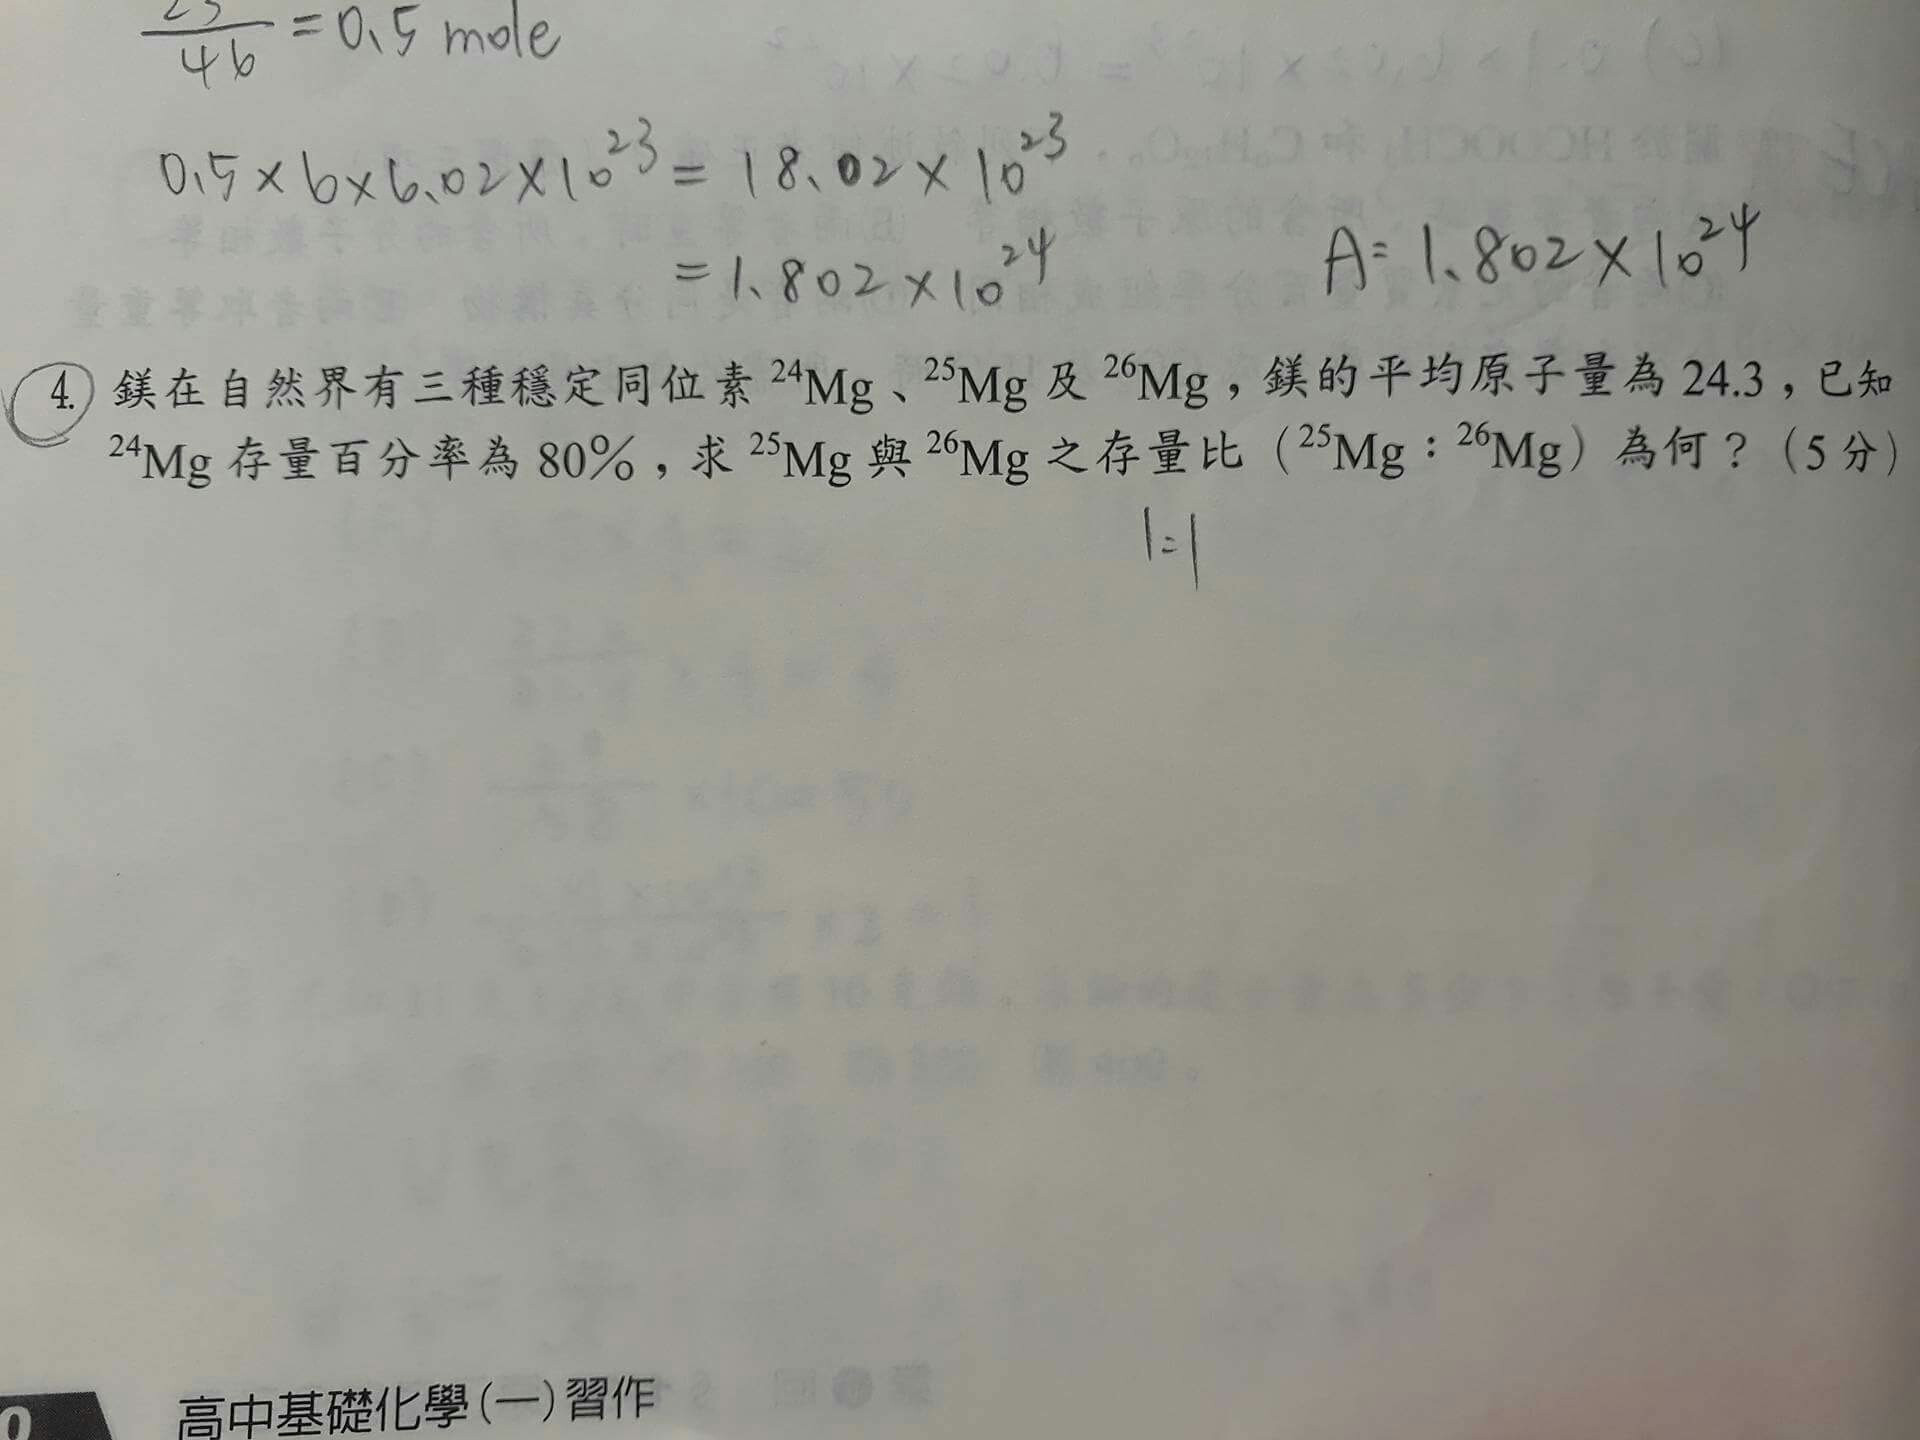 /46 = 0.5 mole
0.5 × 6 × 6.02 × 10²³ = 18.02 × 10²³
= 1.802 × 10²⁴
A = 1.802 × 10²⁴
4. 鎂在自然界有三種穩定同位素 ²⁴Mg、²⁵Mg 及 ²⁶Mg，鎂的平均原子量為 24.3，已知
²⁴Mg 存量百分率為 80%，求 ²⁵Mg 與 ²⁶Mg 之存量比（²⁵Mg：²⁶Mg）為何？（5 分）
1=1
高中基礎化學(一)習作